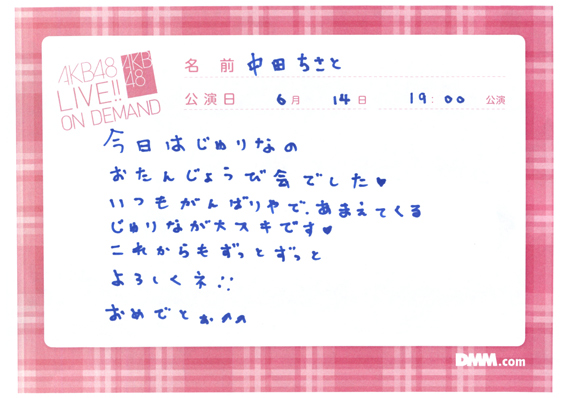 AKB48
LIVE!!
ON DEMAND
AKB
48
名 前 中田ちさと
公演日 6月 14日 19:00 公演
今日はじゅりなの
おたんじょうび会でした♥
いつもがんばりやで、あまえてくる
じゅりなが大スキです♥
これからもずっとずっと
よろしくネ
おめでとぉ
DMM.com